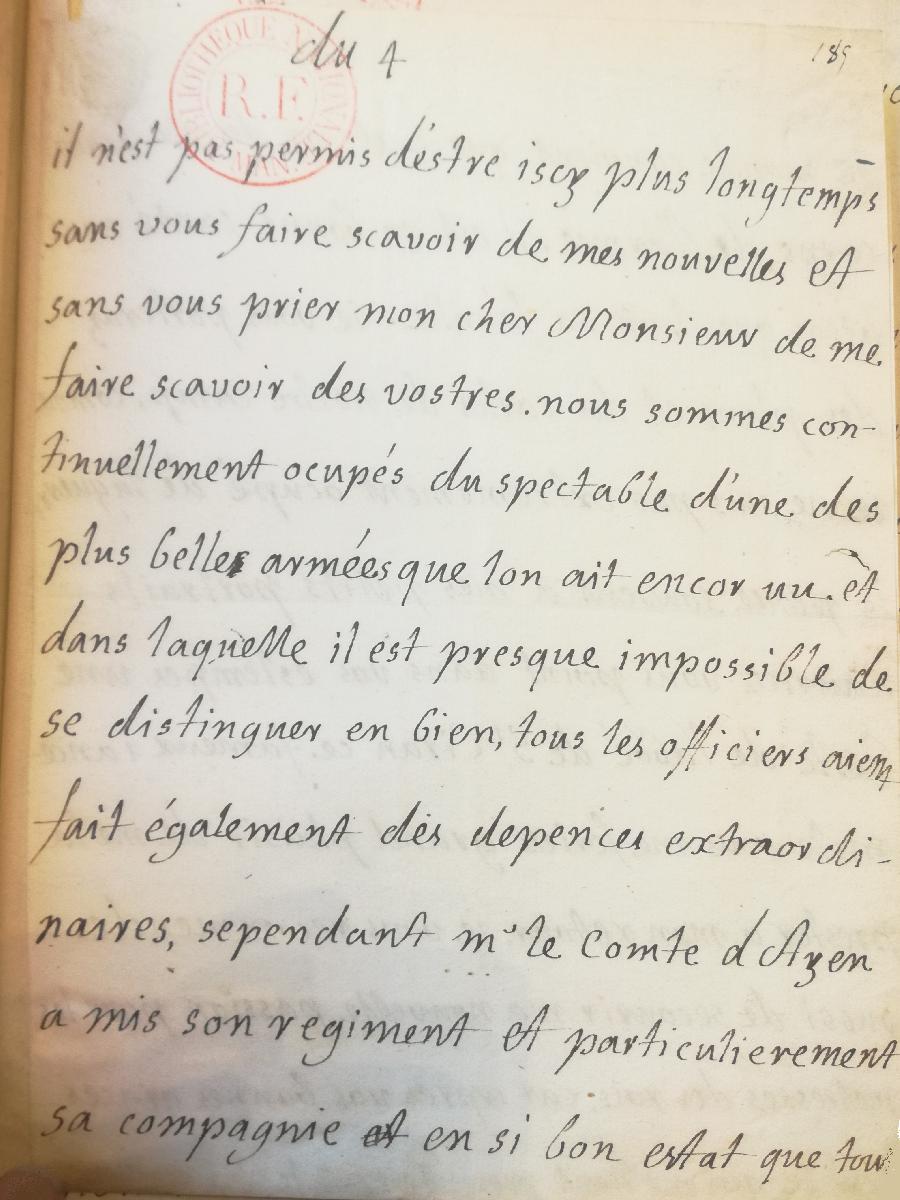 du 4
189
BIBLIOTHEQUE NATIONALE
R.F.
MAN.
il n'est pas permis d'éstre iscy plus longtemps
sans vous faire scavoir de mes nouvelles et
sans vous prier mon cher Monsieur de me
faire scavoir des vostres. nous sommes con-
tinuellement ocupés du spectable d'une des
plus belles armées que lon ait encor vu. et
dans laquelle il est presque impossible de
se distinguer en bien, tous les officiers aient
fait également des depences extraordi-
naires, sependant mr le Comte d Ayen
a mis son regiment et particulierement
sa compagnie et en si bon estat que tous